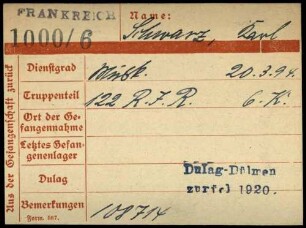 FRANKREICH
Name:
1000/6
Schwarz, Karl
Dienstgrad
Musk. 20.3.94.
Truppenteil
122 R.I.R. 6.K.
Ort der Gefangennahme
Letztes Gefangenenlager
Dulag
Dulag-Dülmen
zurfel 1920.
Bemerkungen
108714
Form. 567.
Aus der Gefangenschaft zurück